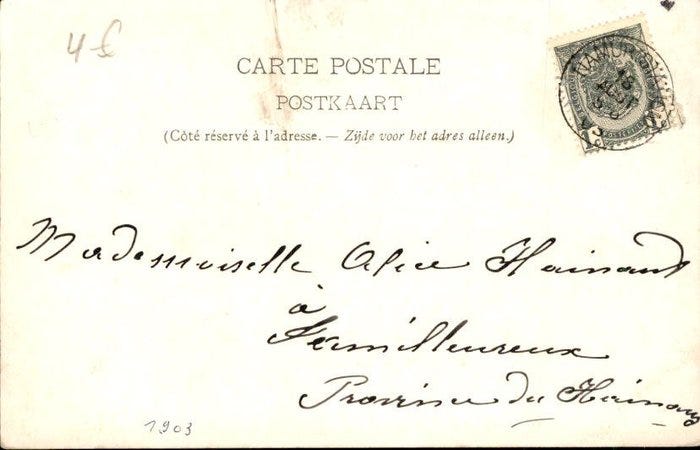 4 £
CARTE POSTALE
POSTKAART
(Côté réservé à l'adresse. — Zijde voor het adres alleen.)
NAMUR
Mademoiselle Alice Hainaut
à
Sermilleureux
Province du Hainaut
1903